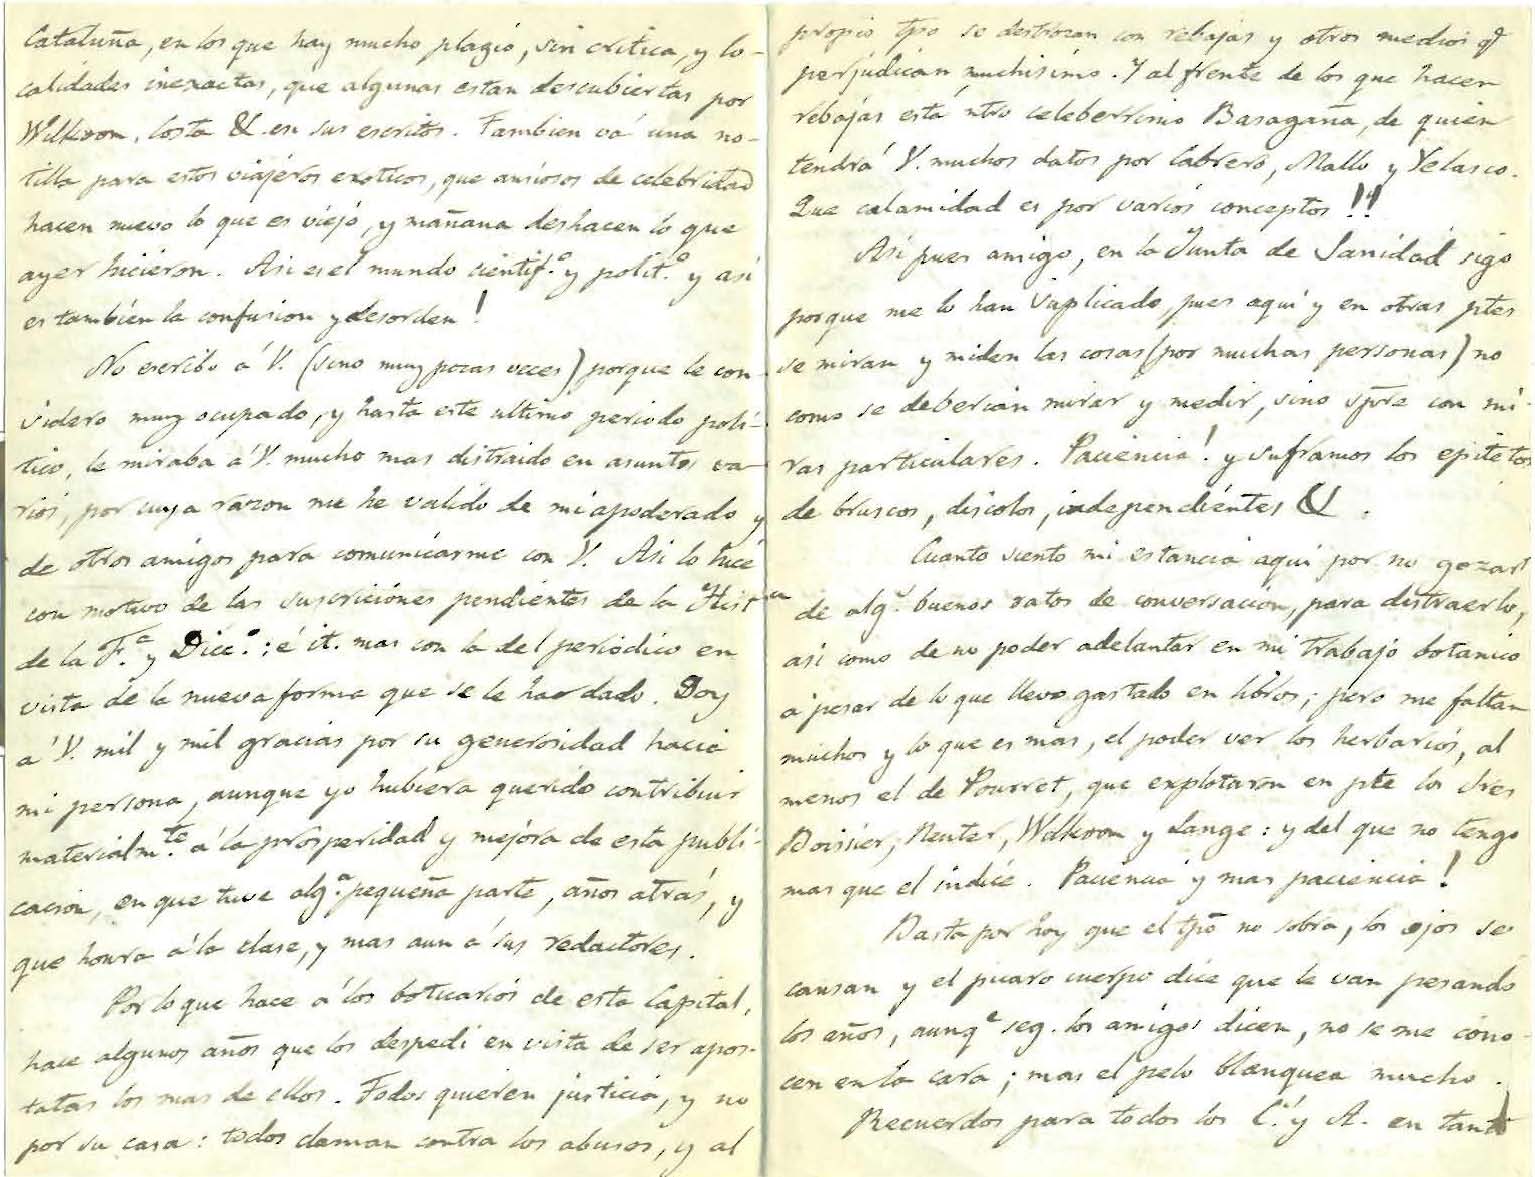 Cataluña, en los que hay mucho plagio, sin critica, y lo-
calidades inexactas, que algunas estan descubiertas por
Wilkoom, Costa &. en sus escritos. Tambien vá una no-
tilla para estos viajeros exoticos, que ansiosos de celebridad
hacen nuevo lo que es viejo, y mañana deshacen lo que
ayer hicieron. Asi es el mundo cientif.º y polit.º y asi
es tambien la confusion y desorden!
No escribo á V. (sino muy pocas veces) porque le con-
sidero muy ocupado, y hasta este ultimo periodo poli-
tico, le miraba á V. mucho mas distraido en asuntos va-
rios, por cuya razon me he valido de mi apoderado y
de otros amigos para comunicarme con V. Asi lo hice
con motivo de las suscriciónes pendientes de la Hist.ª
de la F.ª y Dicc.º: é it. mas con la del periodico en
vista de la nueva forma que se le ha dado. Doy
á V. mil y mil gracias por su generosidad hacia
mi persona, aunque yo hubiera querido contribuir
materialm.te á la prosperidad y mejora de esta publi-
cacion, en que tuve alg.ª pequeña parte, años atrás, y
que honra á la clase, y mas aun á sus redactores.
Por lo que hace á los boticarios de esta Capital,
hace algunos años que los despedi en vista de ser apos-
tatas los mas de ellos. Todos quieren justicia, y no
por su casa: todos claman contra los abusos, y al
propio tpo se destrozan con rebajas y otros medios q̃
perjudican muchisimo. Y al frente de los que hacen
rebajas está ntro celeberrimo Basagaña, de quien
tendrá V. muchos datos por Cabrero, Mallo y Velasco.
Que calamidad es por varios conceptos!!
Asi pues amigo, en la Junta de Sanidad sigo
porque me lo han suplicado, pues aqui y en otras ptes
se miran y miden las cosas (por muchas personas) no
como se deberian mirar y medir, sino spre con mi-
ras particulares. Paciencia! y suframos los epitetos
de bruscos, discolos, independientes &.
Cuanto siento mi estancia aqui por no gozar
de alg.s buenos ratos de conversación, para distraerlo,
asi como de no poder adelantar en mi trabajo botanico
a pesar de lo que llevo gastado en libros; pero me faltan
muchos y lo que es mas, el poder ver los herbarios, al
menos el de Pourret, que explotaron en pte los Sres
Boissier, Reuter, Wilkoom y Lange: y del que no tengo
mas que el indice. Paciencia y mas paciencia!
Basta por hoy que el tpo no sobra, los ojos se
cansan y el picaro cuerpo dice que le van pesando
los años, aunq.e seg. los amigos dicen, no se me cono-
cen en la cara; mas el pelo blanquea mucho.
Recuerdos para todos los C. y A. en tanto